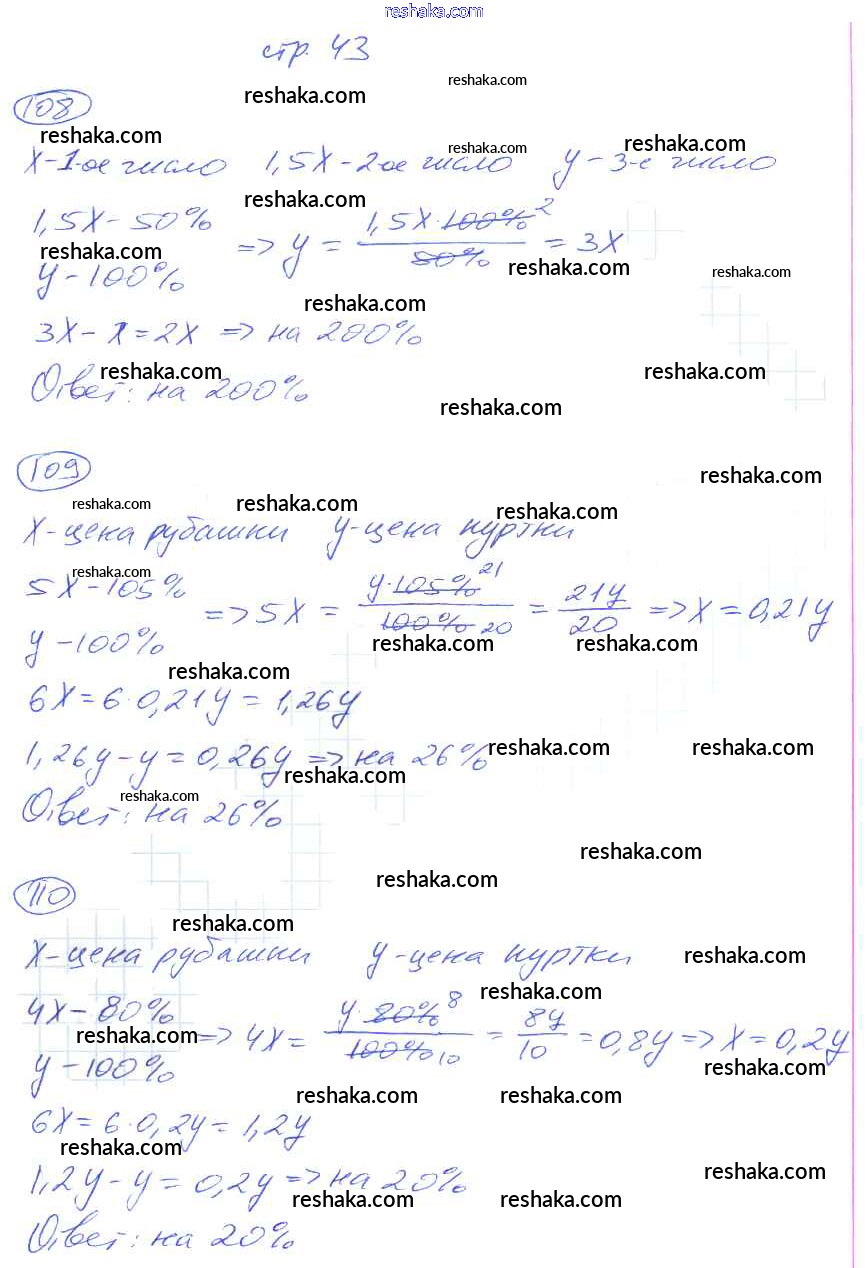 reshaka.com
стр. 43
reshaka.com
reshaka.com
108
reshaka.com
reshaka.com
reshaka.com
X-1-ое число 1,5X-2-ое число y-3-е число
reshaka.com
1,5X-50%
y-100%
=> y = 1,5X·100% 2 / 50% = 3X
reshaka.com
reshaka.com
reshaka.com
reshaka.com
3X-X=2X => на 200%
reshaka.com
reshaka.com
Ответ: на 200%
reshaka.com
109
reshaka.com
reshaka.com
reshaka.com
reshaka.com
X-цена рубашки y-цена куртки
reshaka.com
5X-105%
y-100%
=> 5X = y·105% 21 / 100% 20 = 21y / 20 => X=0,21y
reshaka.com
reshaka.com
reshaka.com
6X=6·0,21y=1,26y
1,26y-y=0,26y => на 26%
reshaka.com
reshaka.com
reshaka.com
reshaka.com
Ответ: на 26%
reshaka.com
reshaka.com
110
reshaka.com
X-цена рубашки y-цена куртки
reshaka.com
reshaka.com
4X-80%
y-100%
=> 4X = y·80% 8 / 100% 10 = 8y / 10 = 0,8y => X=0,2y
reshaka.com
reshaka.com
reshaka.com
reshaka.com
6X=6·0,2y=1,2y
reshaka.com
1,2y-y=0,2y => на 20%
reshaka.com
reshaka.com
reshaka.com
Ответ: на 20%